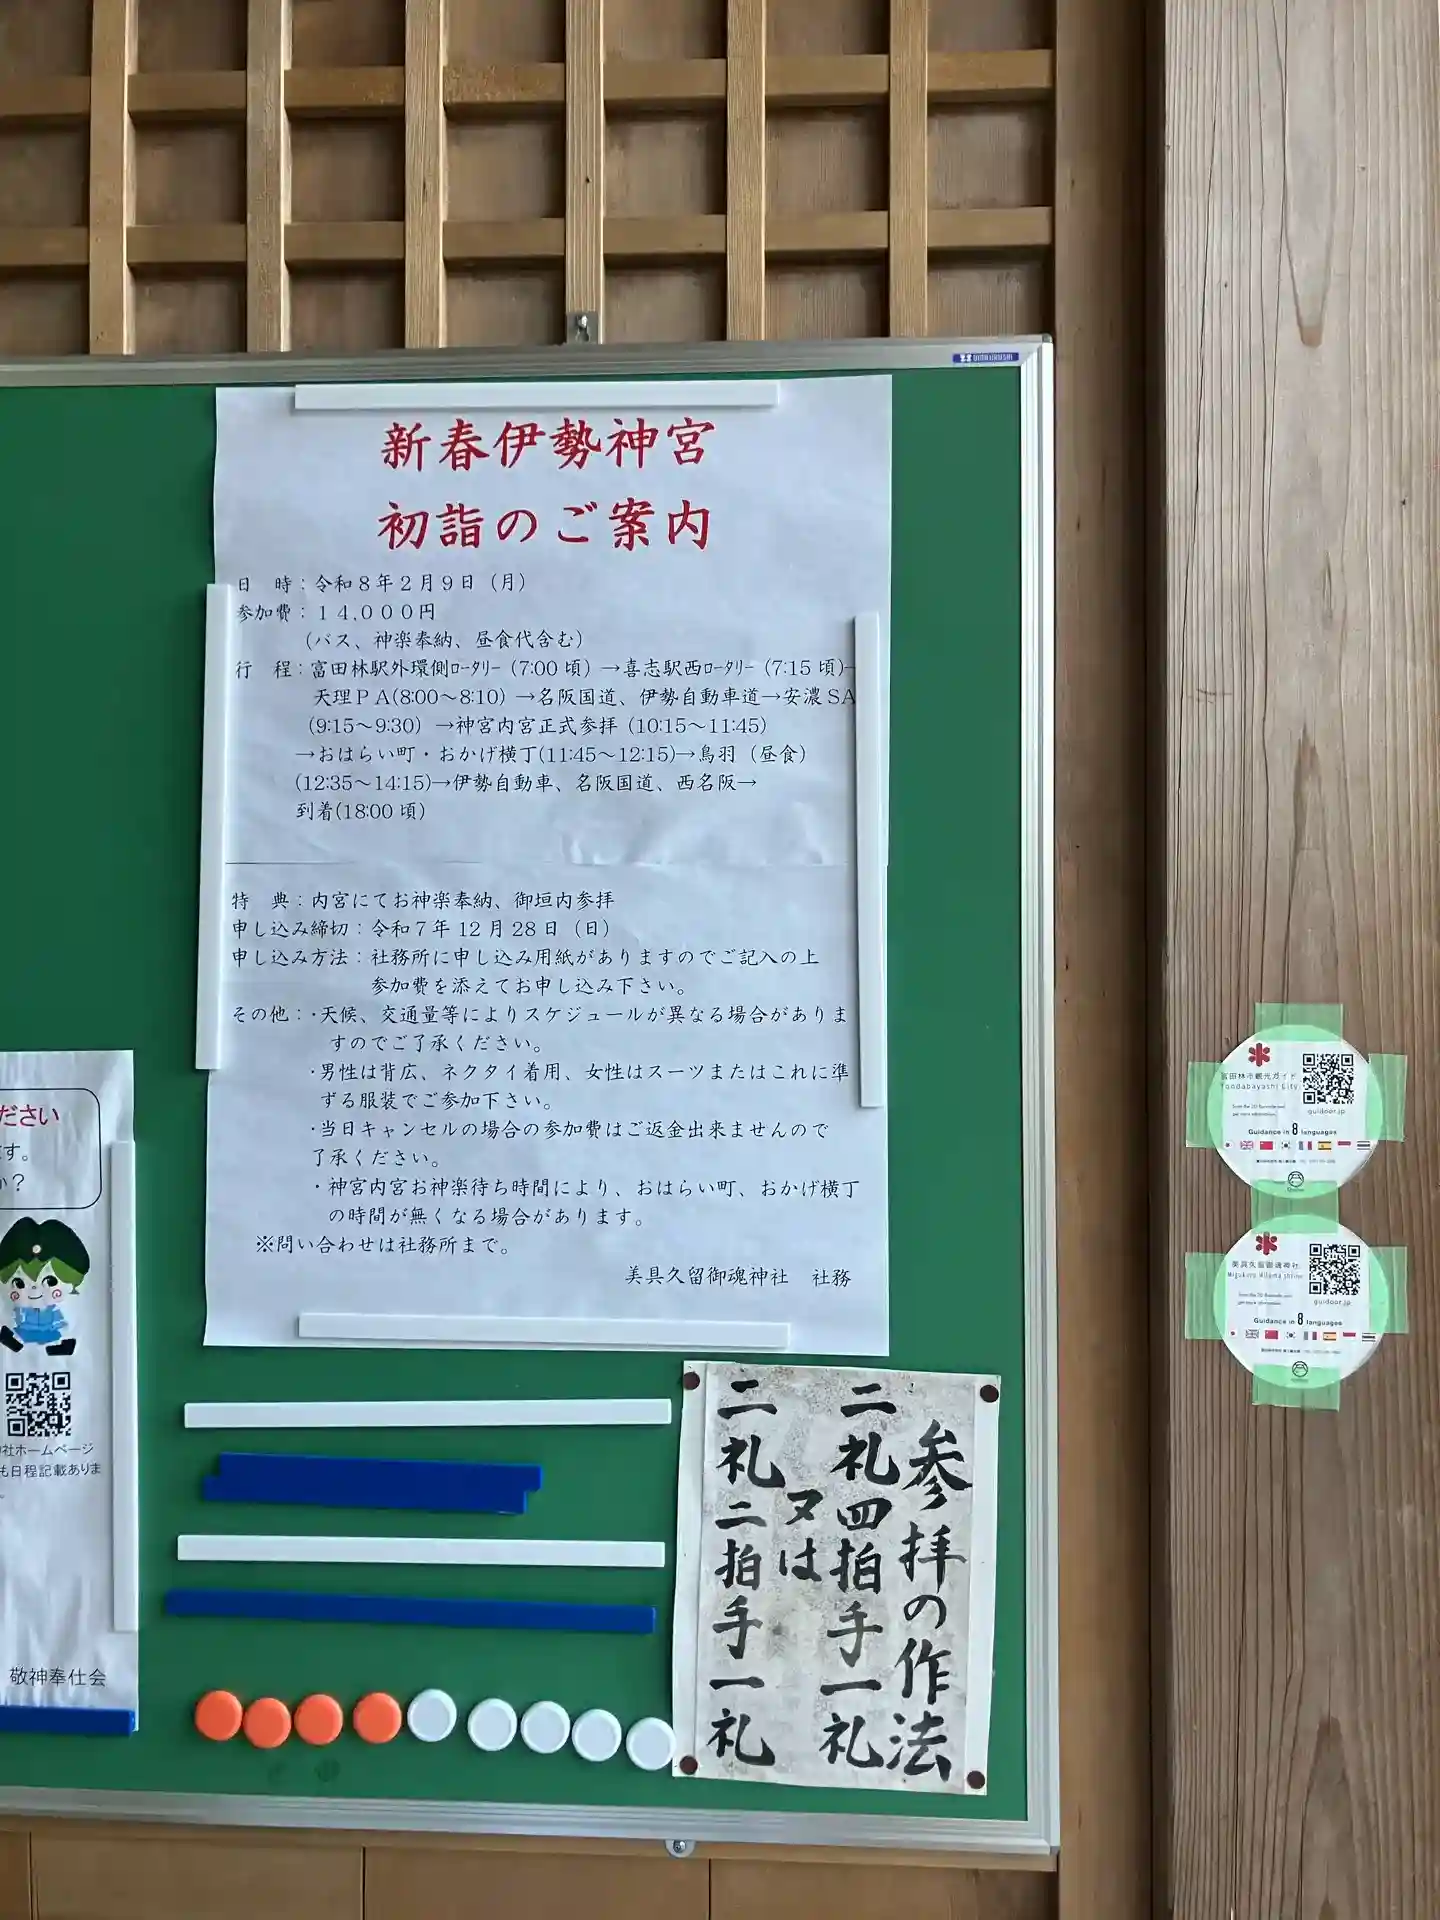 新春伊勢神宮
初詣のご案内
日　時：令和８年２月９日（月）
参加費：１４,０００円
（バス、神楽奉納、昼食代含む）
行　程：富田林駅外環側ﾛｰﾀﾘｰ（7:00 頃）→喜志駅西ﾛｰﾀﾘｰ（7:15 頃）→
天理ＰＡ(8:00～8:10）→名阪国道、伊勢自動車道→安濃ＳＡ
（9:15～9:30）→神宮内宮正式参拝（10:15～11:45）
→おはらい町・おかげ横丁(11:45～12:15)→鳥羽（昼食）
(12:35～14:15)→伊勢自動車、名阪国道、西名阪→
到着(18:00 頃)
特　典：内宮にてお神楽奉納、御垣内参拝
申し込み締切：令和７年 12 月 28 日（日）
申し込み方法：社務所に申し込み用紙がありますのでご記入の上
参加費を添えてお申し込み下さい。
その他：・天候、交通量等によりスケジュールが異なる場合がありま
すのでご了承ください。
・男性は背広、ネクタイ着用、女性はスーツまたはこれに準
ずる服装でご参加下さい。
・当日キャンセルの場合の参加費はご返金出来ませんので
了承ください。
・神宮内宮お神楽待ち時間により、おはらい町、おかげ横丁
の時間が無くなる場合があります。
※問い合わせは社務所まで。
美具久留御魂神社　社務
ださい
す。
か？
社ホームページ
も日程記載ありま
敬神奉仕会
参拝の作法
二礼四拍手一礼
又は
二礼二拍手一礼
富田林市観光ガイド
Tondabayashi City
guidoor.jp
Guidance in 8 languages
美具久留御魂神社
guidoor.jp
Guidance in 8 languages